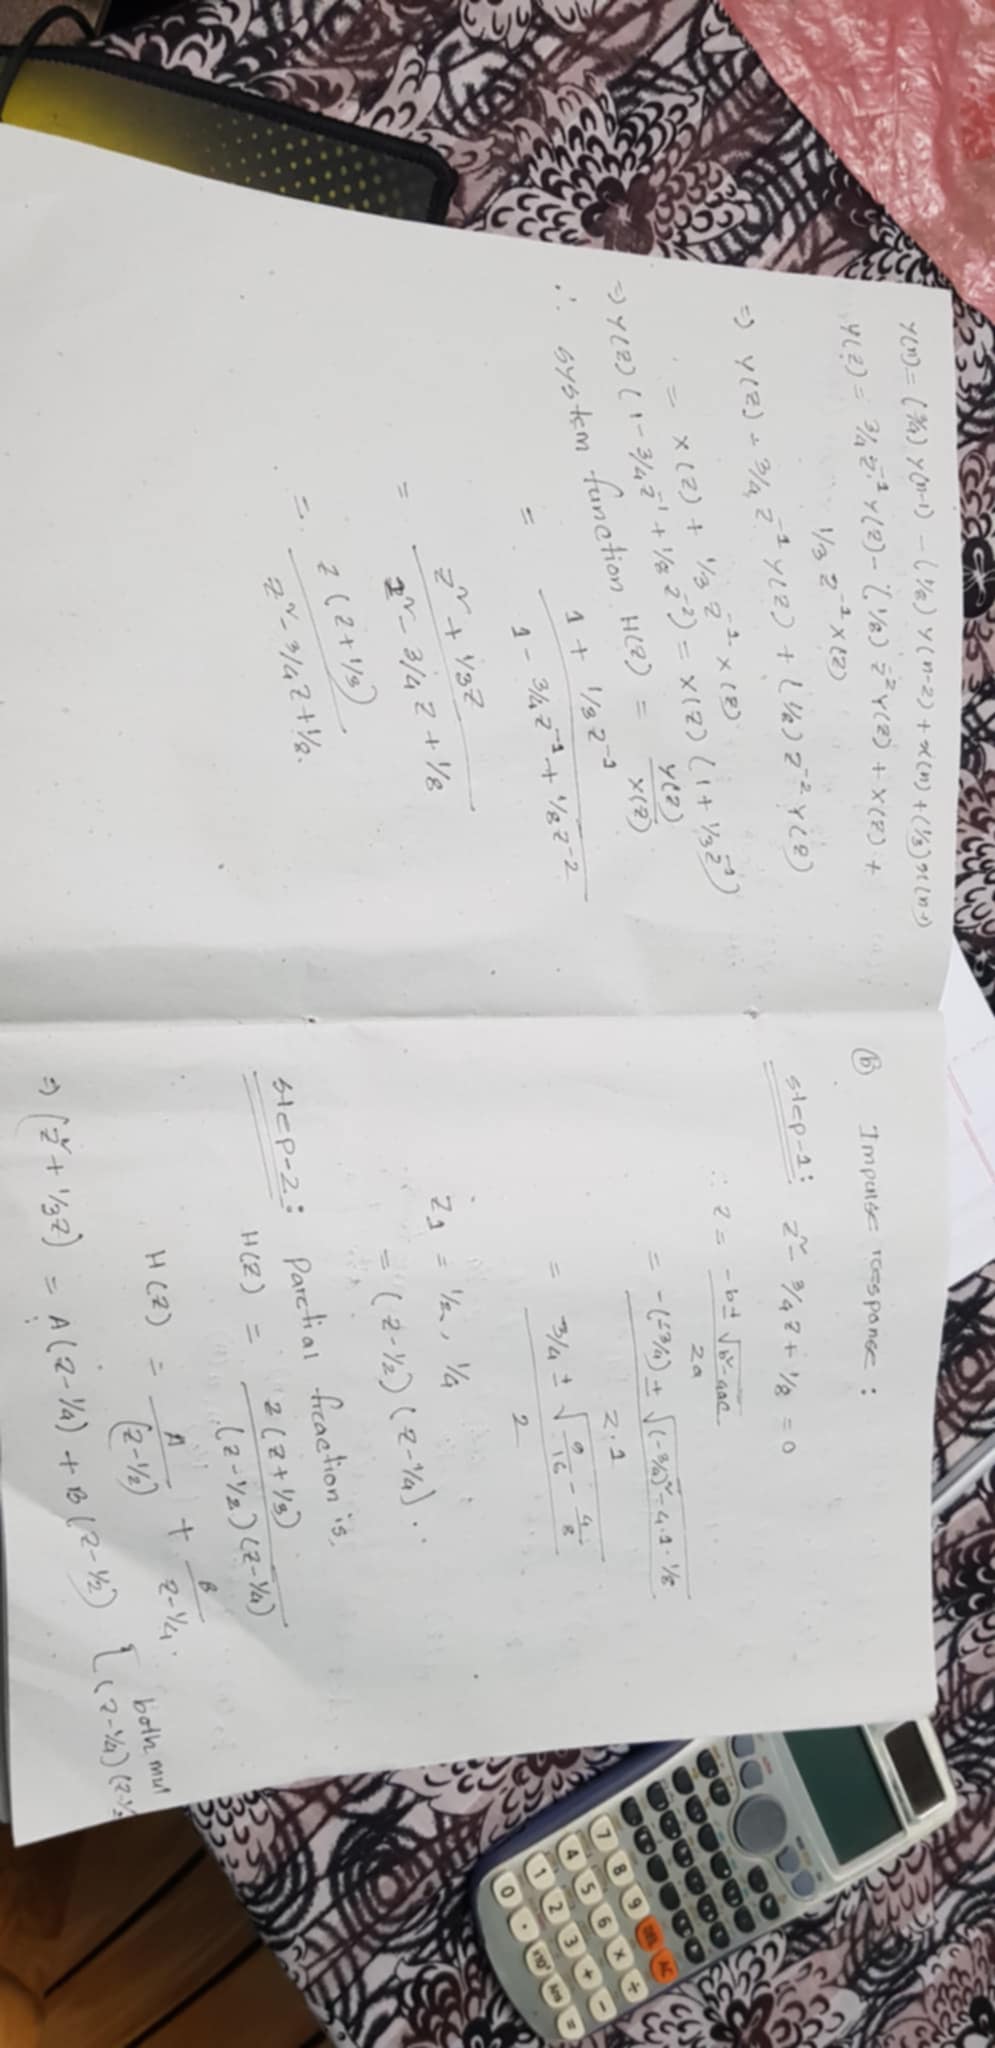 y(n) = (3/4) y(n-1) - (1/8) y(n-2) + x(n) + (1/3) x(n-1)
Y(z) = 3/4 z^-1 Y(z) - (1/8) z^-2 Y(z) + X(z) +
1/3 z^-1 X(z)
=> Y(z) - 3/4 z^-1 Y(z) + (1/8) z^-2 Y(z)
= X(z) + 1/3 z^-1 X(z)
=> Y(z) (1 - 3/4 z^-1 + 1/8 z^-2) = X(z) (1 + 1/3 z^-1)
∴ system function H(z) = Y(z) / X(z)
= 1 + 1/3 z^-1 / 1 - 3/4 z^-1 + 1/8 z^-2
= z² + 1/3 z / z² - 3/4 z + 1/8
= z (z + 1/3) / z² - 3/4 z + 1/8.
(b) Impulse response :
step-1: z² - 3/4 z + 1/8 = 0
∴ z = -b ± √b² - 4ac / 2a
= -(-3/4) ± √(-3/4)² - 4.1.1/8 / 2.1
= 3/4 ± √9/16 - 4/8 / 2
z1 = 1/2, 1/4
= (z - 1/2) (z - 1/4) . .
step-2: Partial fraction is,
H(z) = z (z + 1/3) / (z - 1/2) (z - 1/4)
H(z) = A / (z - 1/2) + B / z - 1/4.
[both mul
(z - 1/4) (z - 1/2
=> (z² + 1/3 z) = A (z - 1/4) + B (z - 1/2)
AC
7 8 9
4 5 6 × ÷
1 2 3 + -
0 . ×10ˣ Ans =